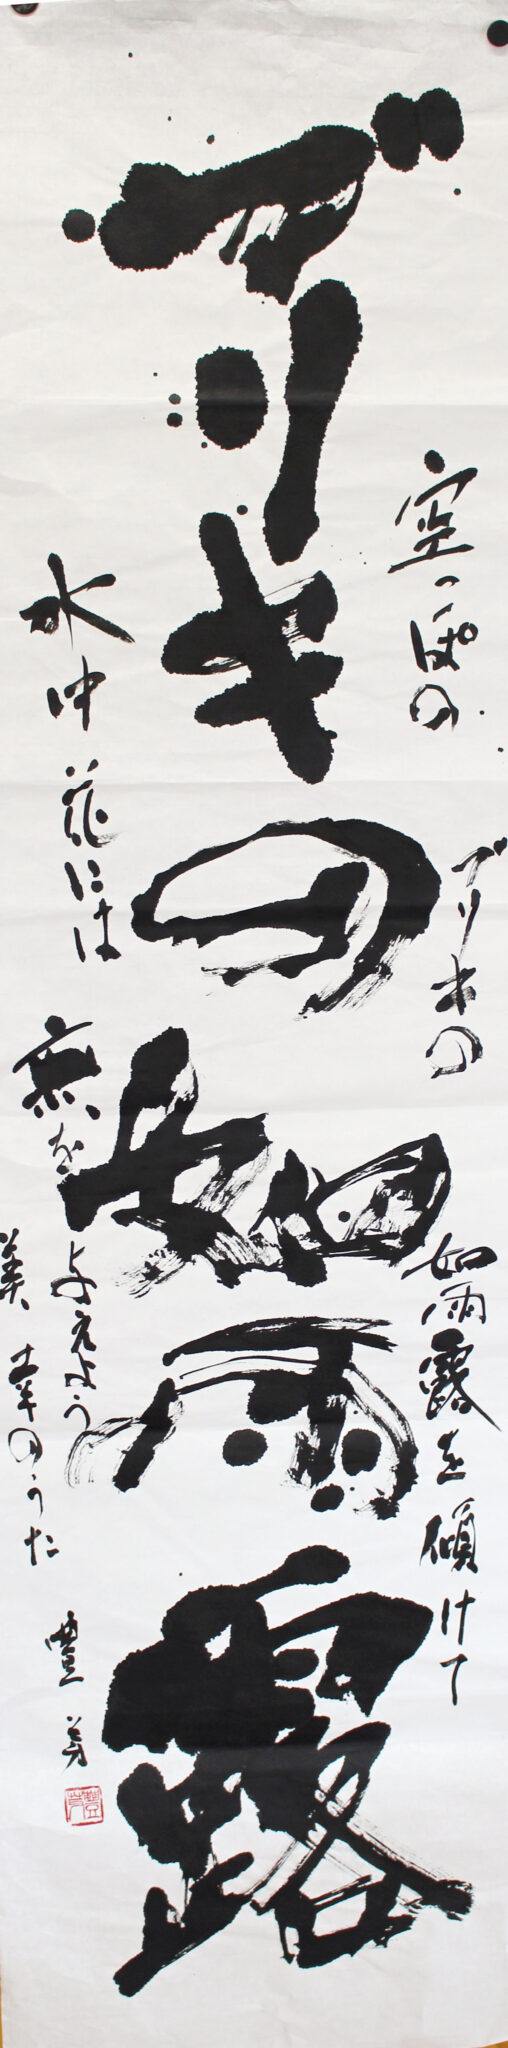 ブリキの如雨露
空っぽの
ブリキの
如雨露を傾けて
水中花には
無を
与えよう
美幸のうた
豊芳